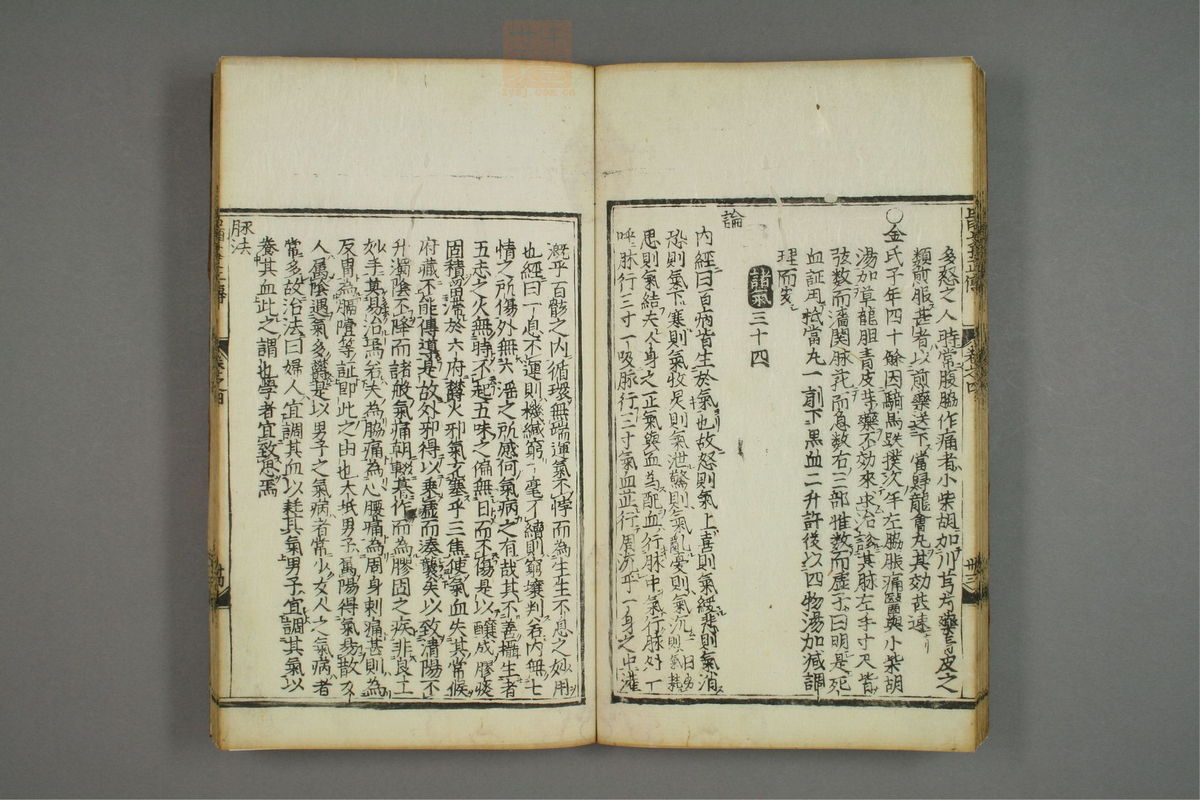 多怒之人時常腹脇作痛者小柴胡加川芎芍藥青皮之
類煎服甚者以煎藥送下當歸龍會丸其効甚速
○金氏子年四十餘因騎馬跌撲次年左脇脹痛醫與小柴胡
湯加草龍膽青皮等藥不効來求治診其脉左手寸尺皆
弦数而濇関脉芤而急数右三部惟数而虛予曰明是死
血証用抵當丸一劑下黒血二升許後以四物湯加减調
理而安
諸氣三十四
論
内經曰百病皆生於氣也故怒則氣上喜則氣緩悲則氣消
恐則氣下寒則氣收炅則氣泄驚則氣亂憂則氣沉則氣耗
思則氣結夫人身之正氣與血為配血行脉中氣行脉外一
呼脉行三寸一吸脉行三寸氣血並行周流乎一身之中灌
溉乎百骸之内循環無端運氣不悖而為生生不息之妙用
也經曰一息不運則機緘窮一毫不續則窮壤判若内無七
情之所傷外無六淫之所感何氣病之有哉其不善攝生者
五志之火無時不起五味之偏無日而不傷是以釀成膠痰
固積留滞於六府鬱火邪氣充塞乎三焦使氣血失其常候
府藏不能傳導是故外邪得以乗虛而湊襲矣以致清陽不
升濁陰不降而諸般氣痛朝輟暮作而為膠固之疾非良工
妙手其易治焉若夫為脇痛為心腰痛為周身刺痛甚則為
反胃為膈噎等証即此之由也大抵男子属陽得氣易散女
人属陰遇氣多鬱是以男子之氣病者常少女人之氣病者
常多故治法曰婦人宜調其血以耗其氣男子宜調其氣以
養其血此之謂也學者宜致思焉
脉法